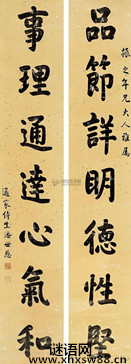 振之年兄大人雅屬
品節詳明德性堅
事理通達心氣和
通家侍生潘世恩
谜语网
www.xhxsw88.cn